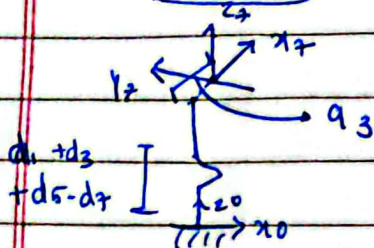 z7
x7
y7
q3
d1 + d3
+ d5 - d7
z0
x0